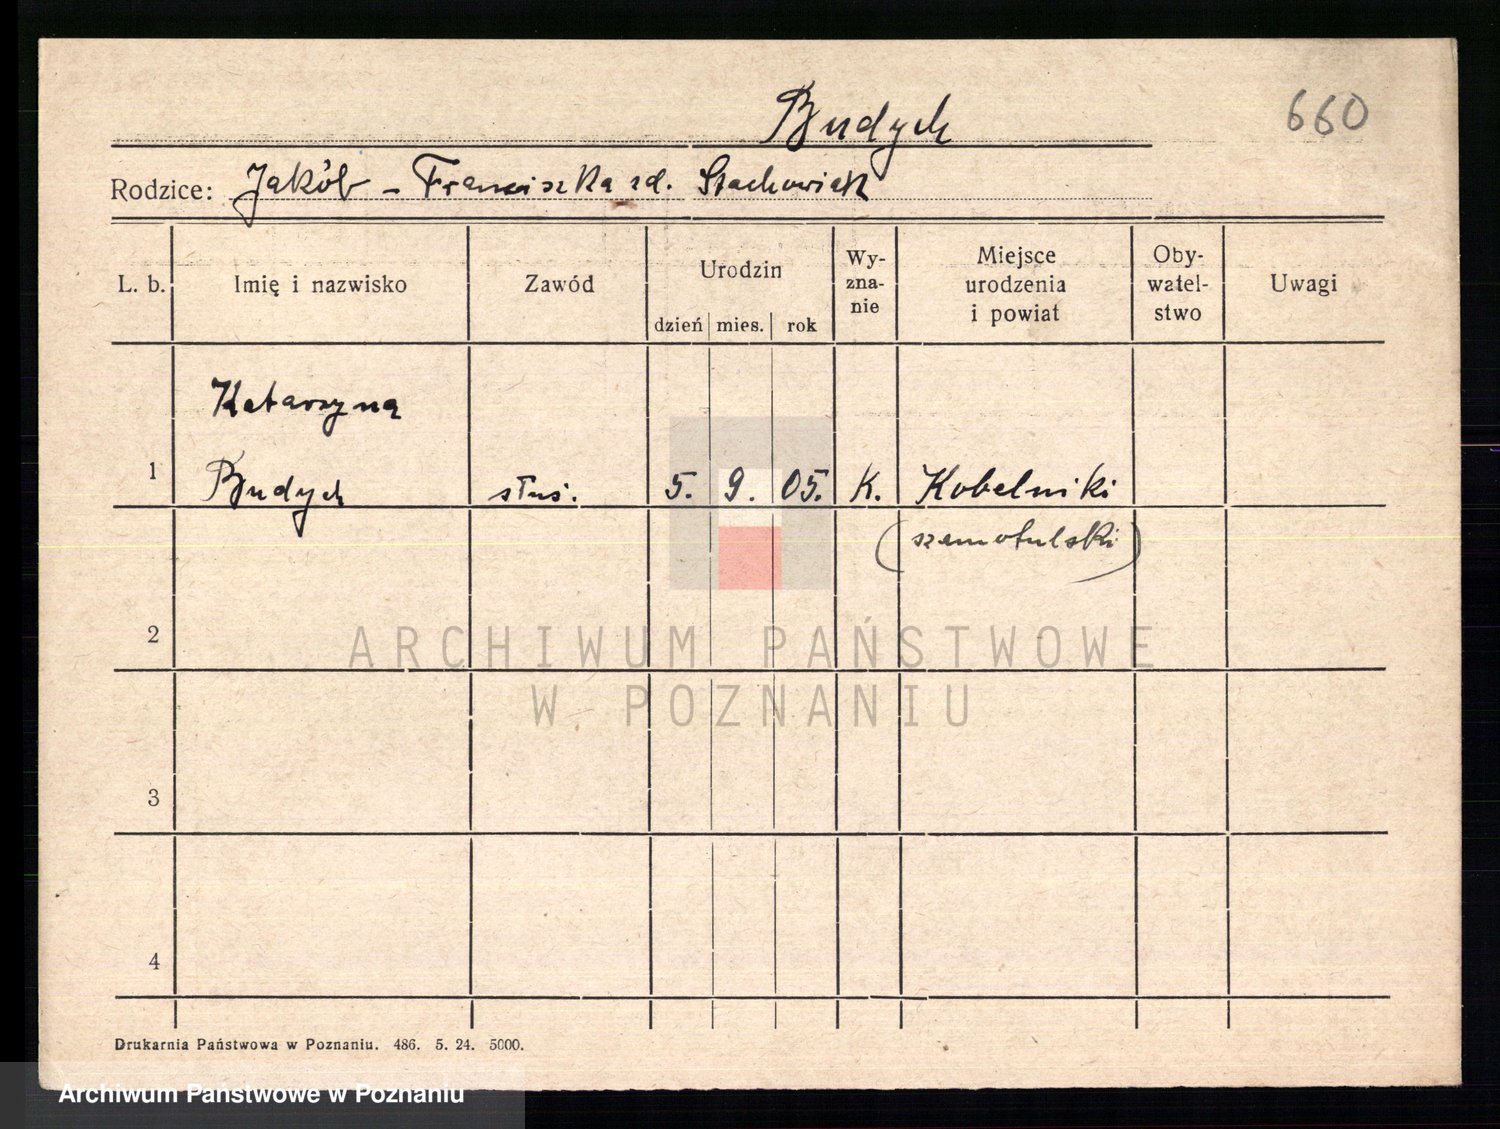 Budych
660
Rodzice: Jakób – Franciszka zd. Stachowiak
L. b. Imię i nazwisko Zawód Urodzin dzień mies. rok Wy-zna-nie Miejsce urodzenia i powiat Oby-watel-stwo Uwagi
Katarzyna
1 Budych służ. 5. 9. 05. K. Kobelniki
(szamotulski)
2
ARCHIWUM PAŃSTWOWE
W POZNANIU
3
4
Drukarnia Państwowa w Poznaniu. 486. 5. 24. 5000.
Archiwum Państwowe w Poznaniu